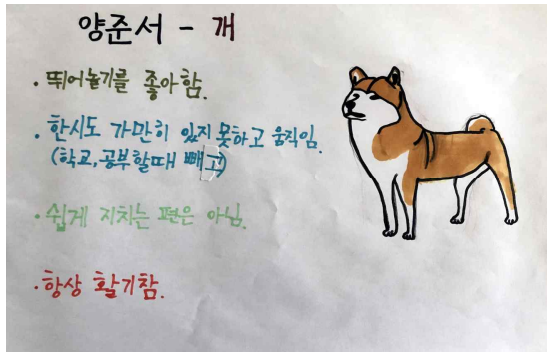 양준서 - 개
· 뛰어놀기를 좋아함.
· 한시도 가만히 있지 못하고 움직임.
(학교, 공부할때 빼고)
· 쉽게 지치는 편은 아님.
· 항상 활기참.